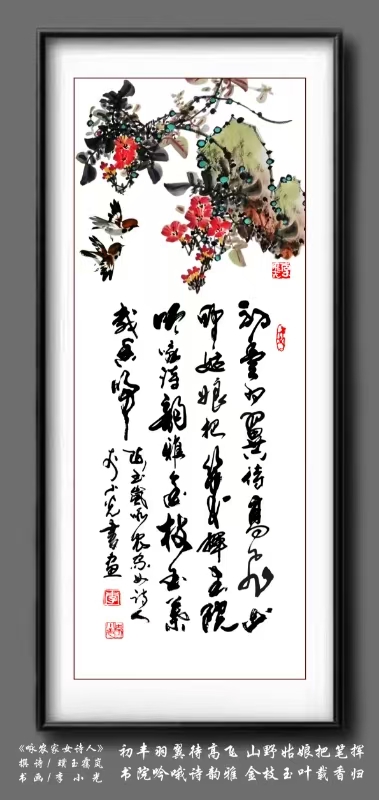 初丰羽翼待高飞山
野姑娘把笔挥书院
吟哦诗韵雅金枝玉葉
载香归
咏农家女诗人
李小光书画
《咏农家女诗人》
撰诗/璞玉霭岚
书画/李小光
初丰羽翼待高飞 山野姑娘把笔挥
书院吟哦诗韵雅 金枝玉叶载香归